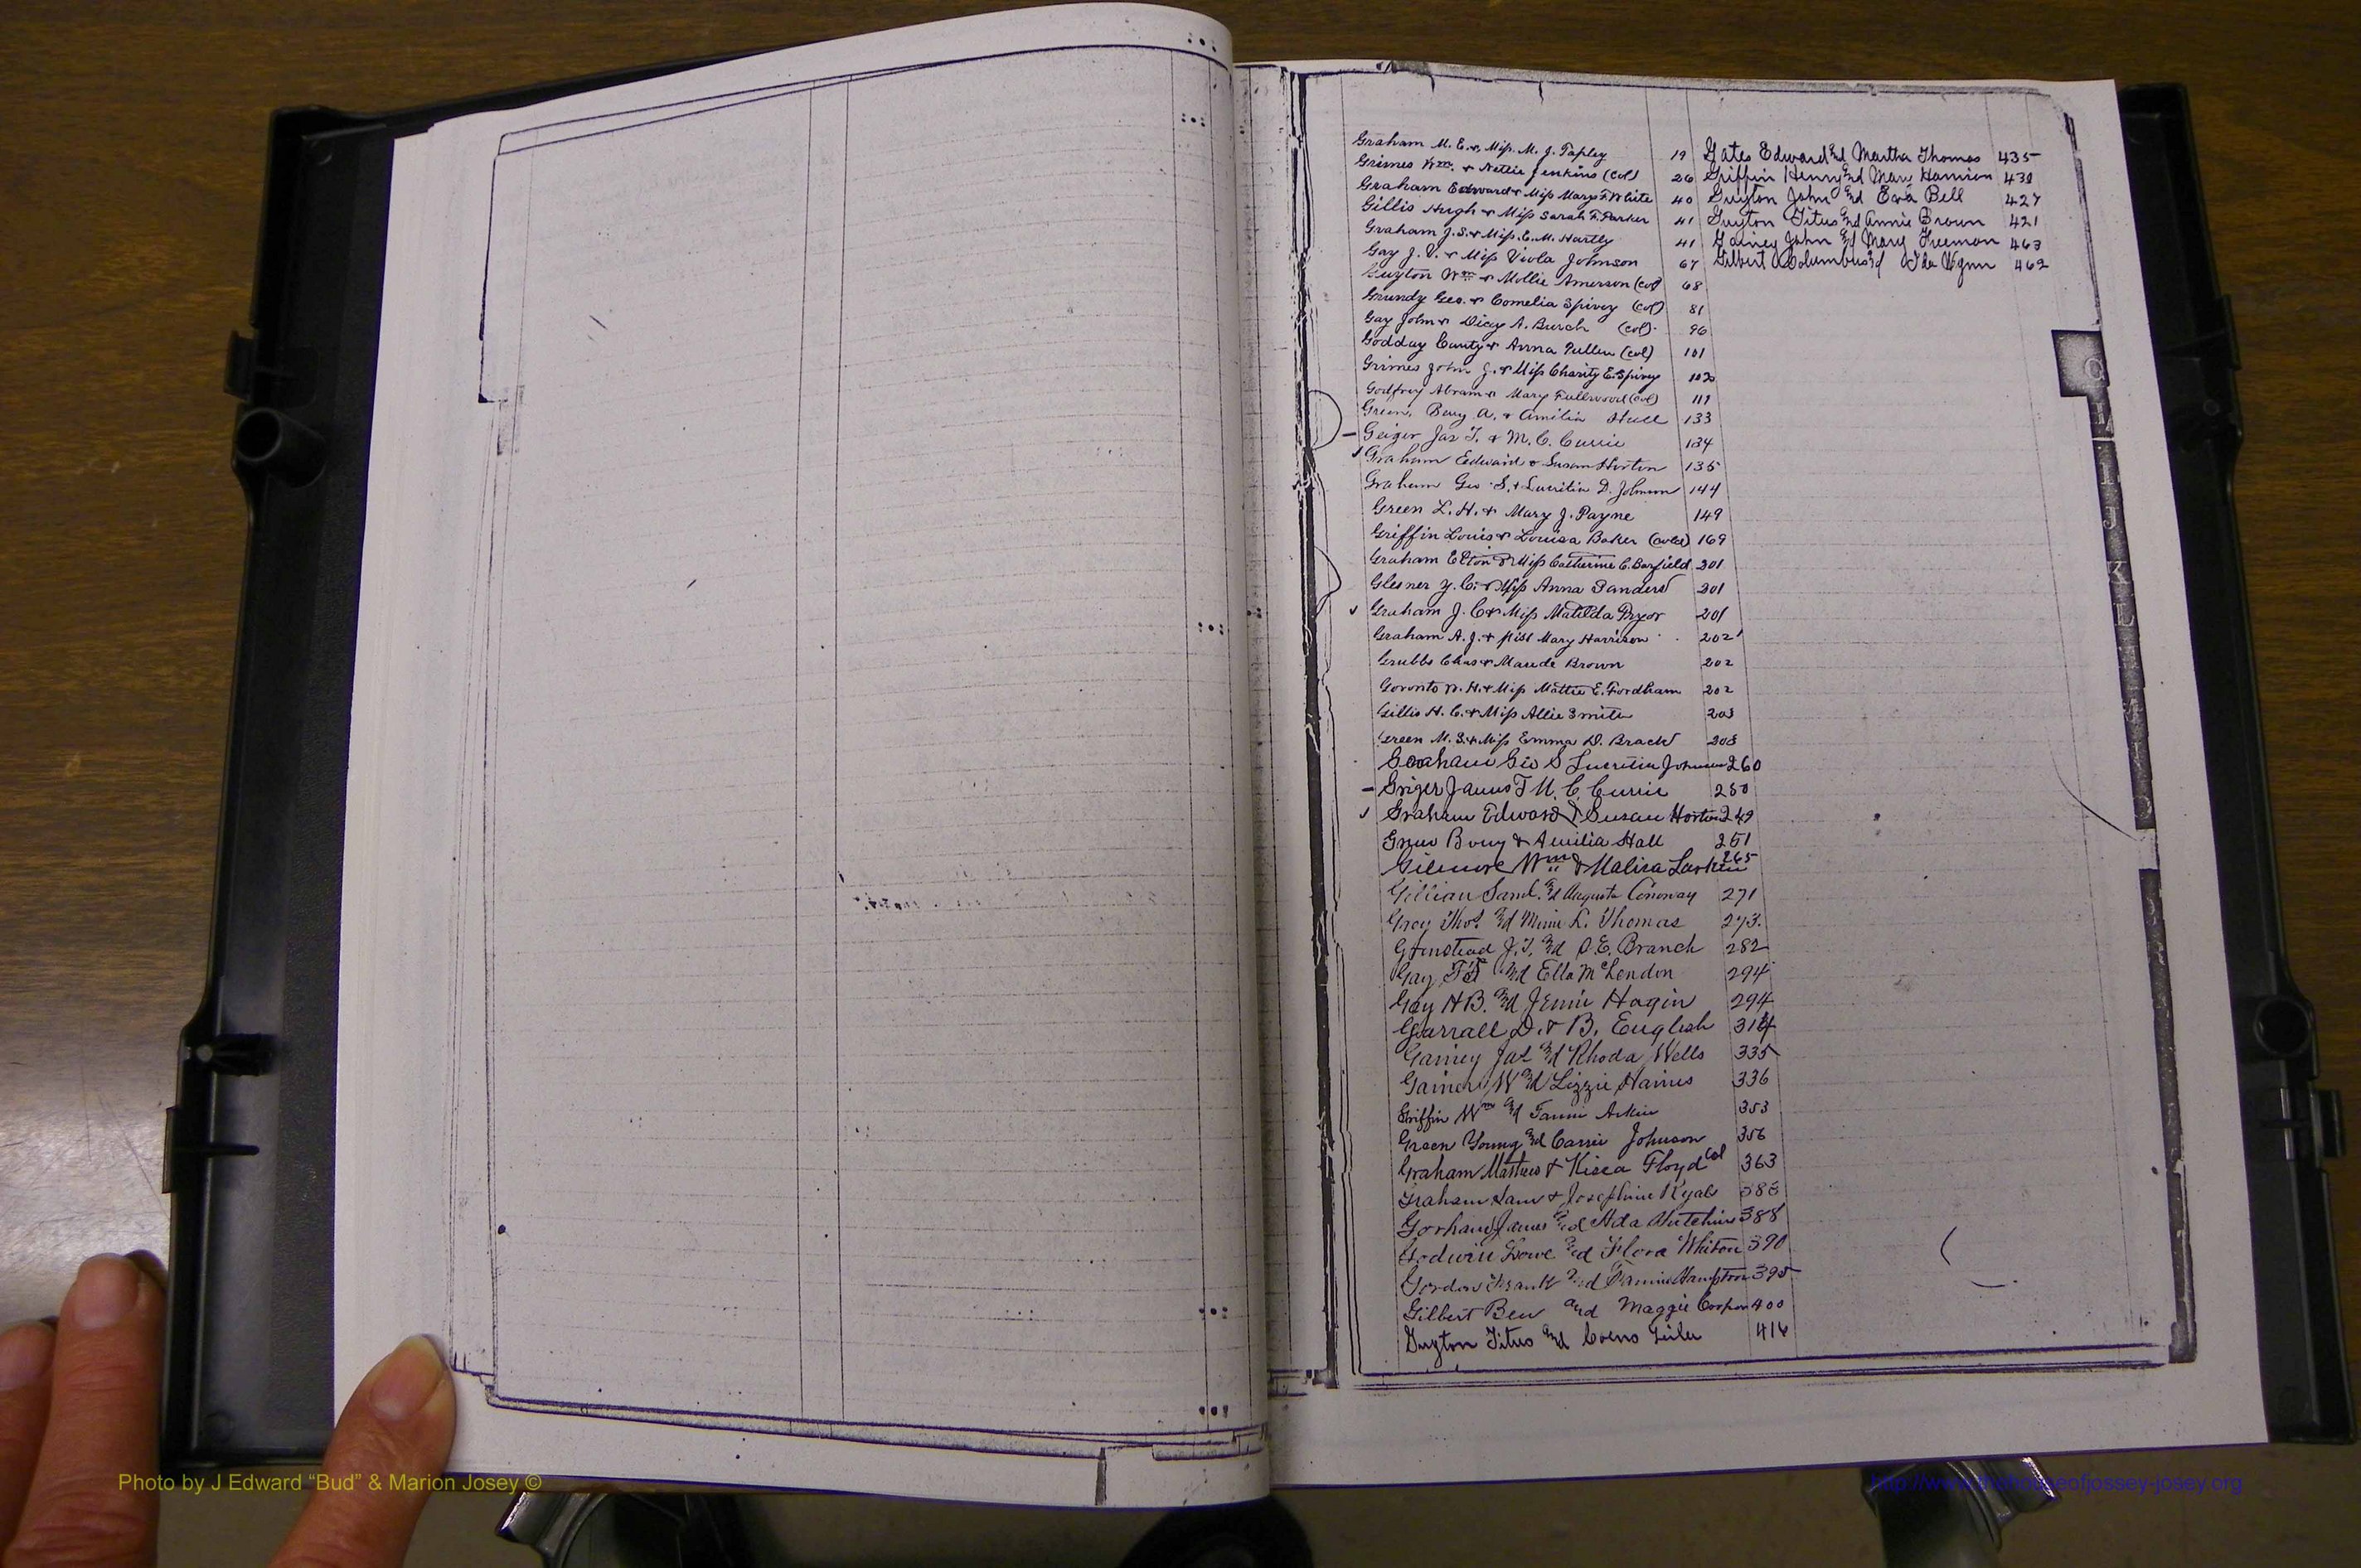 Graham M. E. & Miss M. J. Tapley 19
Grimes Wm. & Nettie Jenkins (col) 26
Graham Edward & Miss Mary F. White 40
Gillis Hugh & Miss Sarah F. Parker 41
Graham J. S. & Miss E. M. Hartly 41
Gay J. V. & Miss Viola Johnson 67
Guyton Wm & Mollie Amerson (col) 68
Grundy Geo. & Cornelia Spivey (col) 81
Gay John & Dicy A. Burch (col). 96
Godduy & Anna Pullen (col) 101
Grimes John J. & Miss Charity E. Spivey
Godfrey Abram & Mary Fullwood (col)
Green, Beny A. & Amilia Hall 133
Geiger Jas T. & M. C. Currie 134
Graham Edward & Susan Horton 135
Graham Geo. S. & Lucritia D. Johnson 144
Green L. H. & Mary J. Payne 149
Griffin Louis & Louisa Baker (cold) 169
Graham Elton & Miss Catherine C. Barfield 201
Glesner Y. C. & Miss Anna Sanders 201
Graham J. C & Miss Matilda Pryor 201
Graham A. J. & Miss Mary Harrison 202
Grubbs Chas & Maude Brown 202
Goronto N. H. & Miss Mattie E. Fordham 202
Gillis H. C. & Miss Allie Smith 203
Green M. S. & Miss Emma D. Brack 203
Graham Geo S Lucretia Johnson 260
Griger James T M. C. Currie 250
Graham Edward & Susan Horton 249
Green Beny & Amilia Hall 251
Gilmore Wm & Malira Larkin 265
Gillian Sand. and Augusta Conoway 271
Gray Thos. and Minie L. Thomas 273.
Grinstead J. T. and O. E. Branch 282
Gay and Ella McLendon 294
Gay H B. and Jennie Hagin 294
Garrall D. & B. English 314
Gainey Jas and Rhoda Wells 335
Gainey W and Lizzie Hainus 336
Griffin Wm and Fannie Askin 353
Green Young and Carrie Johnson 356
Graham Mathew & Kissa Floyd col 363
Graham Sam & Josephine Ryals
Gorham James and Ada Hutchins 388
Godwin Lowe and Flora Whiton 390
Gordon Frank and Fannie Hampton 395
Gilbert Ben and Maggie Cooper 400
Guyton Titus and 416
Gates Edward and Martha Thomas 435
Griffin Henry and Mary Harrison
Guyton John and Eva Bell 427
Guyton Titus and Annie Brown 421
Gainey John and Mary Freeman 463
Gilbert Columbus and Ida Wynn 462
Photo by J Edward “Bud” & Marion Josey ©
http://www.thehouseofjossey-josey.org